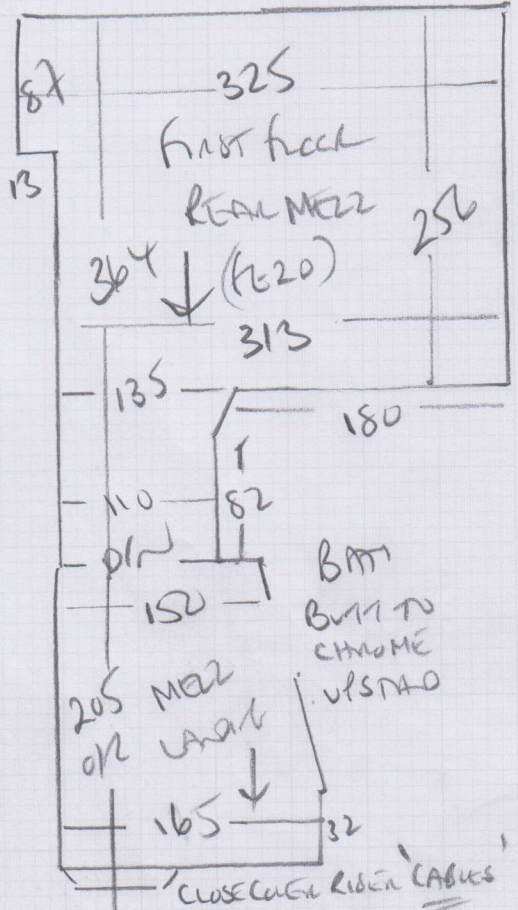 87
325
FIRST FLOOR
13
REAR MEZZ
256
364
(FE20)
313
135
180
110
82
D/W
BATH
150
BUTT TO
CHROME
UPSTAND
205
MEZZ
O/R
LANDING
165
32
CLOSE COVER RISER 'CABLES'